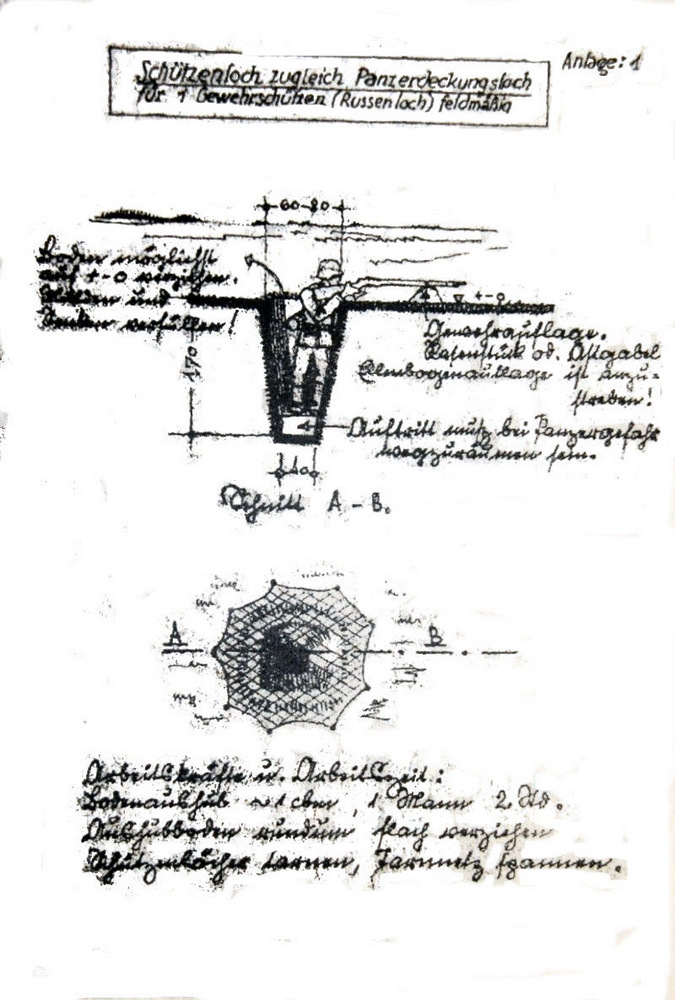 Anlage: 1
Schützenloch zugleich Panzerdeckungsloch
für 1 Gewehrschützen (Russenloch) feldmäßig
60-80
Boden möglichst
auf +-0 verziehen.
und
verfüllen!
+-0
Gewehrauflage.
Rasenstück od. Astgabel
Elenbogenauflage ist anzu-
streben!
170
Auftritt muß bei Panzergefahr
wegzuräumen sein.
40
Schnitt A-B.
A
B
Arbeitskräfte u. Arbeitszeit:
Bodenaushub ~1 cbm, 1 Mann 2 Std.
Aushubboden rundum flach verziehen
Schützenlöcher tarnen, Tarnnetz spannen.